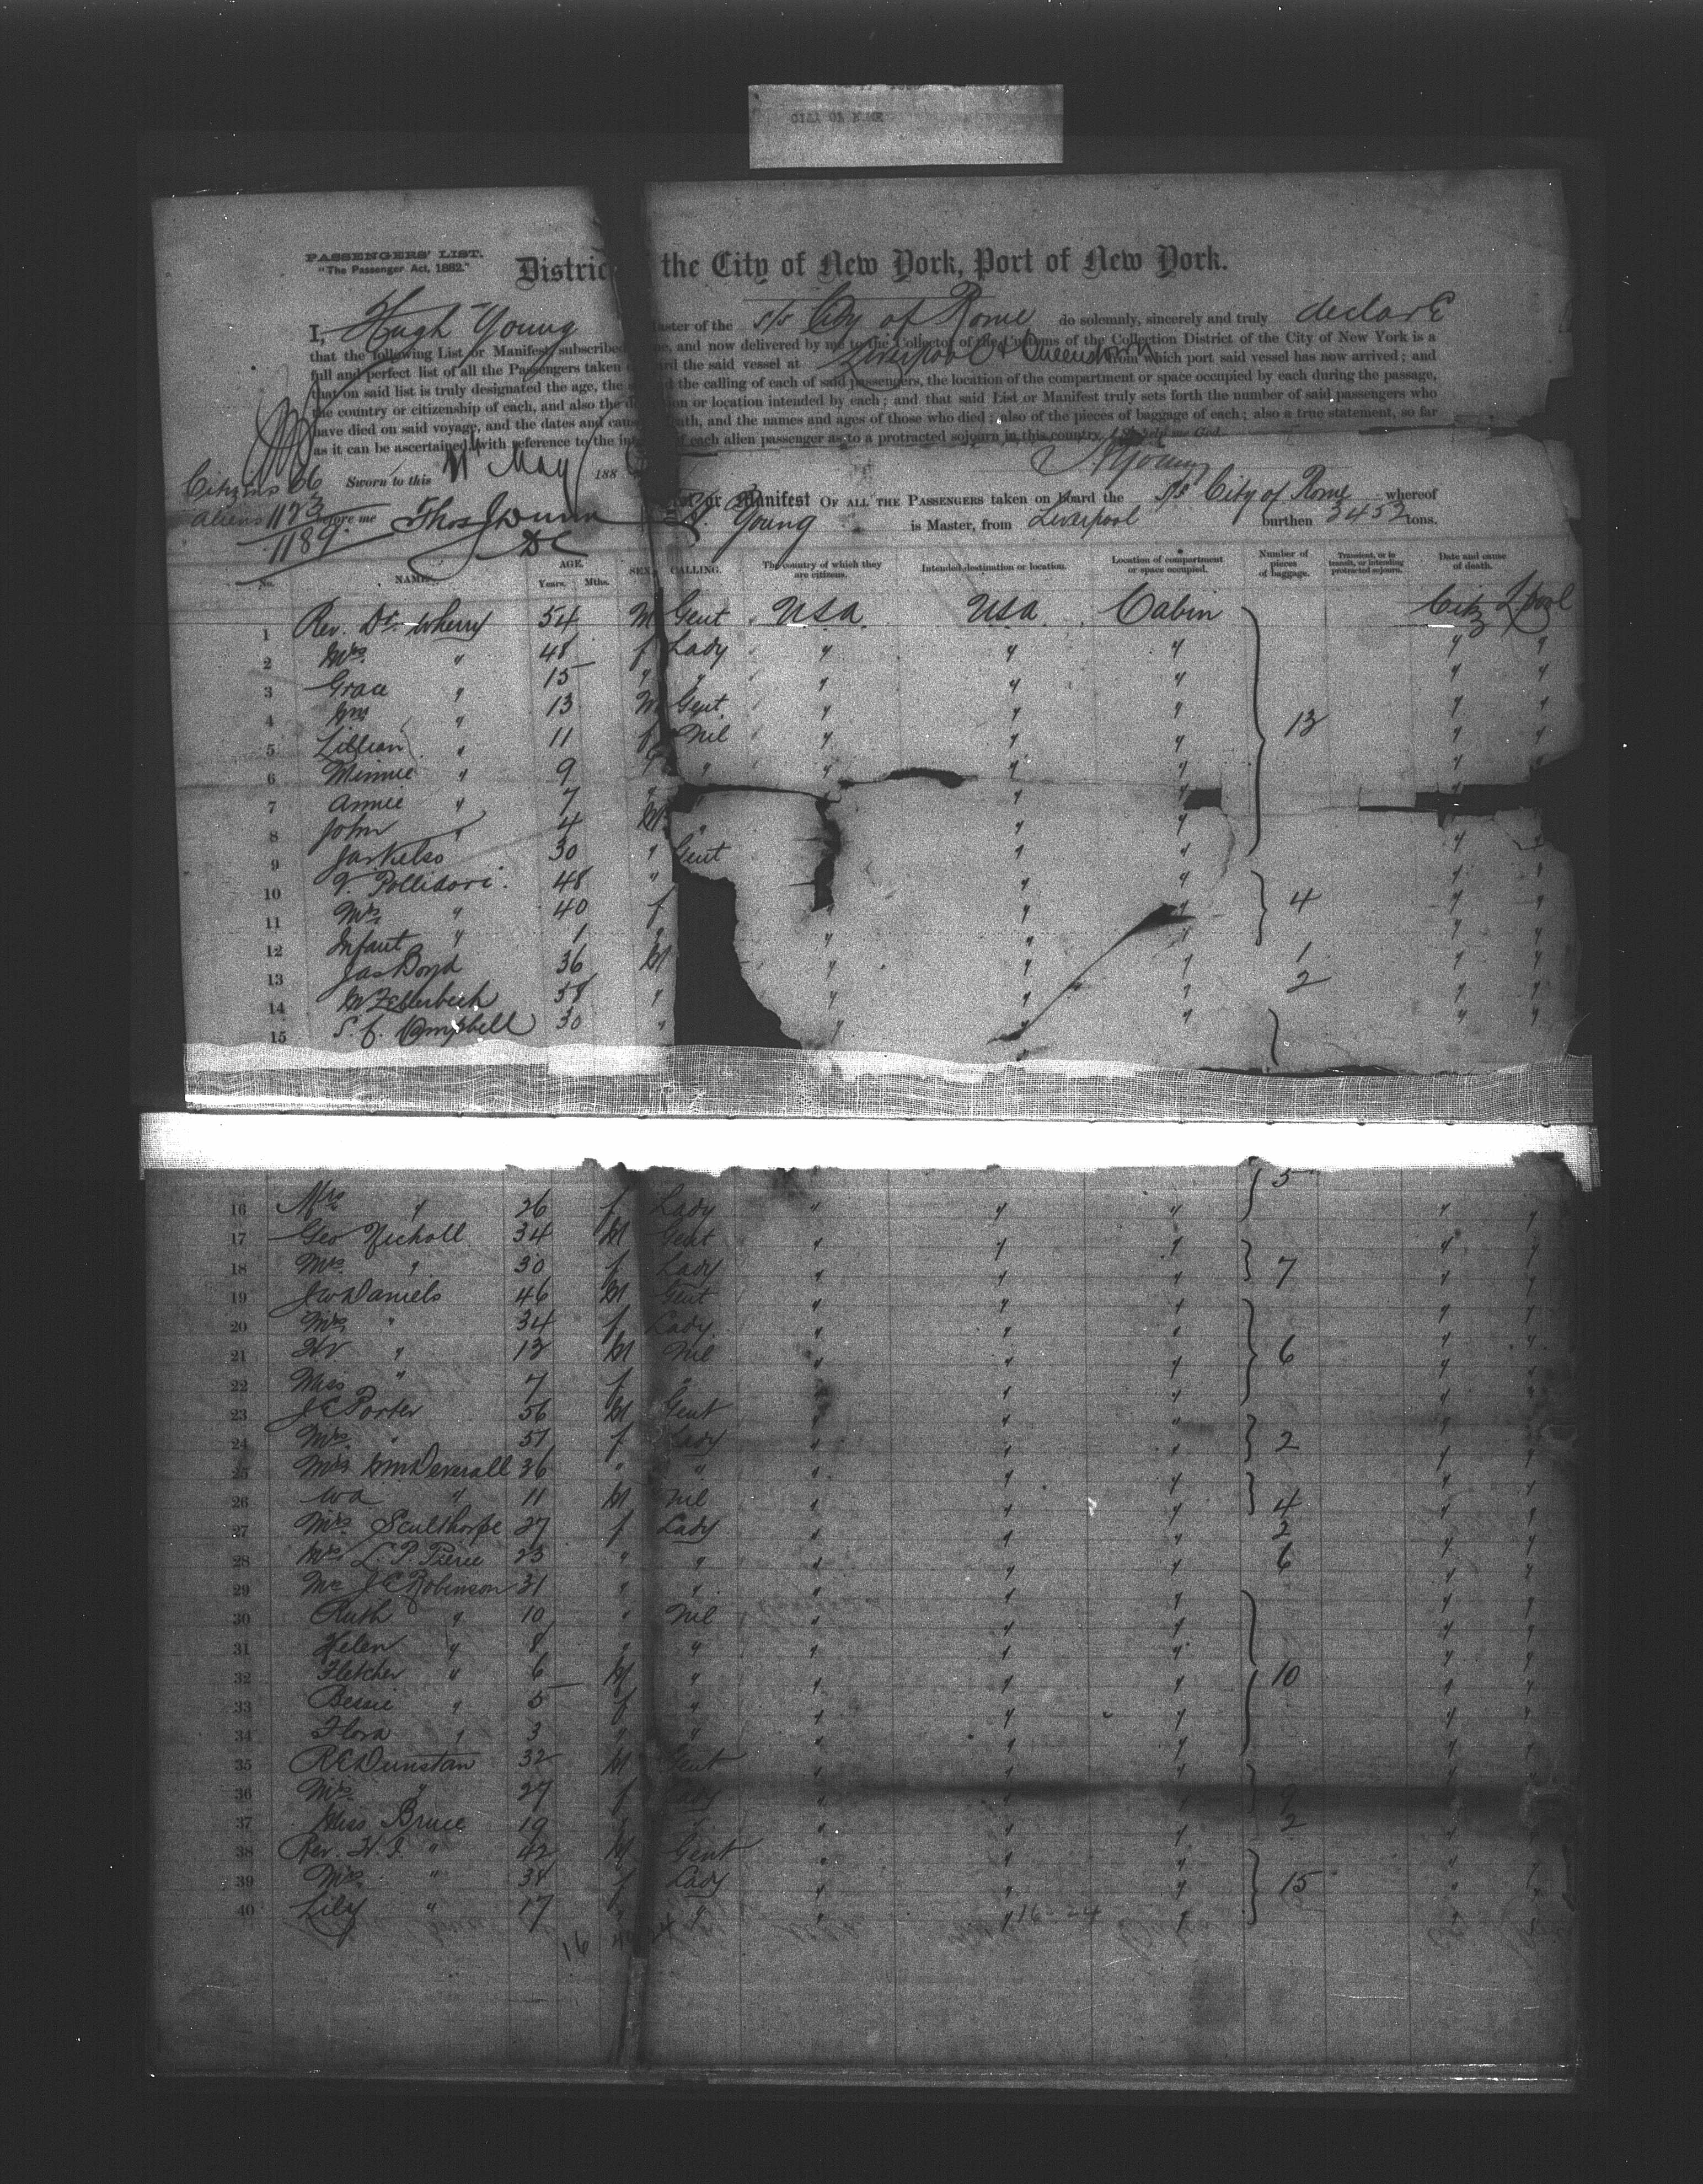 PASSENGERS' LIST.
"The Passenger Act, 1882."
Distric the City of New York, Port of New York.
I, Hugh Young aster of the s/s City of Rome do solemnly, sincerely and truly declare
that the following List or Manifest, subscribed me, and now delivered by me to the Collector of the Customs of the Collection District of the City of New York is a
full and perfect list of all the Passengers taken rd the said vessel at Liverpool & Queenstown from which port said vessel has now arrived; and
that on said list is truly designated the age, the the calling of each of said passengers, the location of the compartment or space occupied by each during the passage,
the country or citizenship of each, and also the d ion or location intended by each; and that said List or Manifest truly sets forth the number of said passengers who
have died on said voyage, and the dates and caus ath, and the names and ages of those who died; also of the pieces of baggage of each; also a true statement, so far
as it can be ascertained, with reference to the in of each alien passenger as to a protracted sojourn in this country. So help me God.
H Young
Citizens 66 Sworn to this 21 May 188
Aliens 1123 before me Thos J Dunn
1189 DC
or Manifest OF ALL THE PASSENGERS taken on board the s/s City of Rome whereof
H. Young is Master, from Liverpool burthen 3452 tons.
No. NAME. AGE. Years. Mths. SEX. CALLING. The country of which they are citizens. Intended destination or location. Location of compartment or space occupied. Number of pieces of baggage. Transient, or in transit, or intending protracted sojourn. Date and cause of death.
1 Rev. Dr. Wherry 54 M Gent USA USA Cabin Citz Lpool
2 Mrs " 48 f Lady " " " " "
3 Grace " 15 " " " " " " "
4 Wm " 13 M Gent " " " " "
5 Lillian " 11 f Nil " " " 13 " "
6 Minnie " 9 " " " " " " "
7 Annie " 7 " " " "
8 John " 4 M " " " " "
9 Jas Kelso 30 " Gent " " " "
10 V. Pollidori 48 " " " " "
11 Mrs " 40 f " " 4 " "
12 Infant " 1 " " " " " "
13 Jas Boyd 36 M " " " 1 " "
14 58 " " " " 2 " "
15 S. C. Campbell 30 " " " " " "
5
16 Mrs " 26 f Lady " " " " "
17 Geo Nicholl 34 M Gent " " " " "
18 Mrs " 30 f Lady " " " 7 " "
19 J W Daniels 46 M Gent " " " " "
20 Mrs " 34 f Lady " " " " "
21 " 13 M Nil " " " 6 " "
22 Miss " 7 f " " " " " "
23 J E Porter 56 M Gent " " " " "
24 Mrs " 51 f Lady " " " 2 " "
25 Mrs Wm Deverall 36 " " " " " " "
26 Wa " 11 M Nil " " " 4 " "
27 Mrs Sculthorpe 27 f Lady " " " 2 " "
28 Mrs L. P. Pierce 23 " " " " " 6 " "
29 Mrs J E Robinson 31 " " " " " " "
30 Ruth " 10 " Nil " " " " "
31 Helen " 8 " " " " " " "
32 Fletcher " 6 M " " " " 10 " "
33 Bessie " 5 f " " " " " "
34 Flora " 3 " " " " " " "
35 R E Dunstan 32 M Gent " " " " "
36 Mrs " 27 f Lady " " " 9 " "
37 Miss Bruce 19 " " " " " 2 " "
38 Rev. H. J. " 42 M Gent " " " " "
39 Mrs " 38 f Lady " " " 15 " "
40 Lily " 17 " " " " " " "
16 24
16